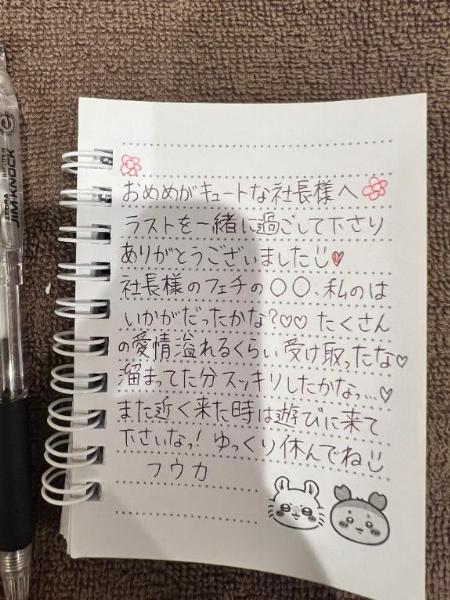 おめめがキュートな社長様へ
ラストを一緒に過ごして下さり
ありがとうございました
社長様のフェチの〇〇、私のは
いかがだったかな?♡♡ たくさん
の愛情溢れるくらい受け取ったな♡
溜まってた分スッキリしたかなっ...♡
また近く来た時は遊びに来て
下さいなっ! ゆっくり休んでね
フウカ
ZEBRA
JIM-KNOCK